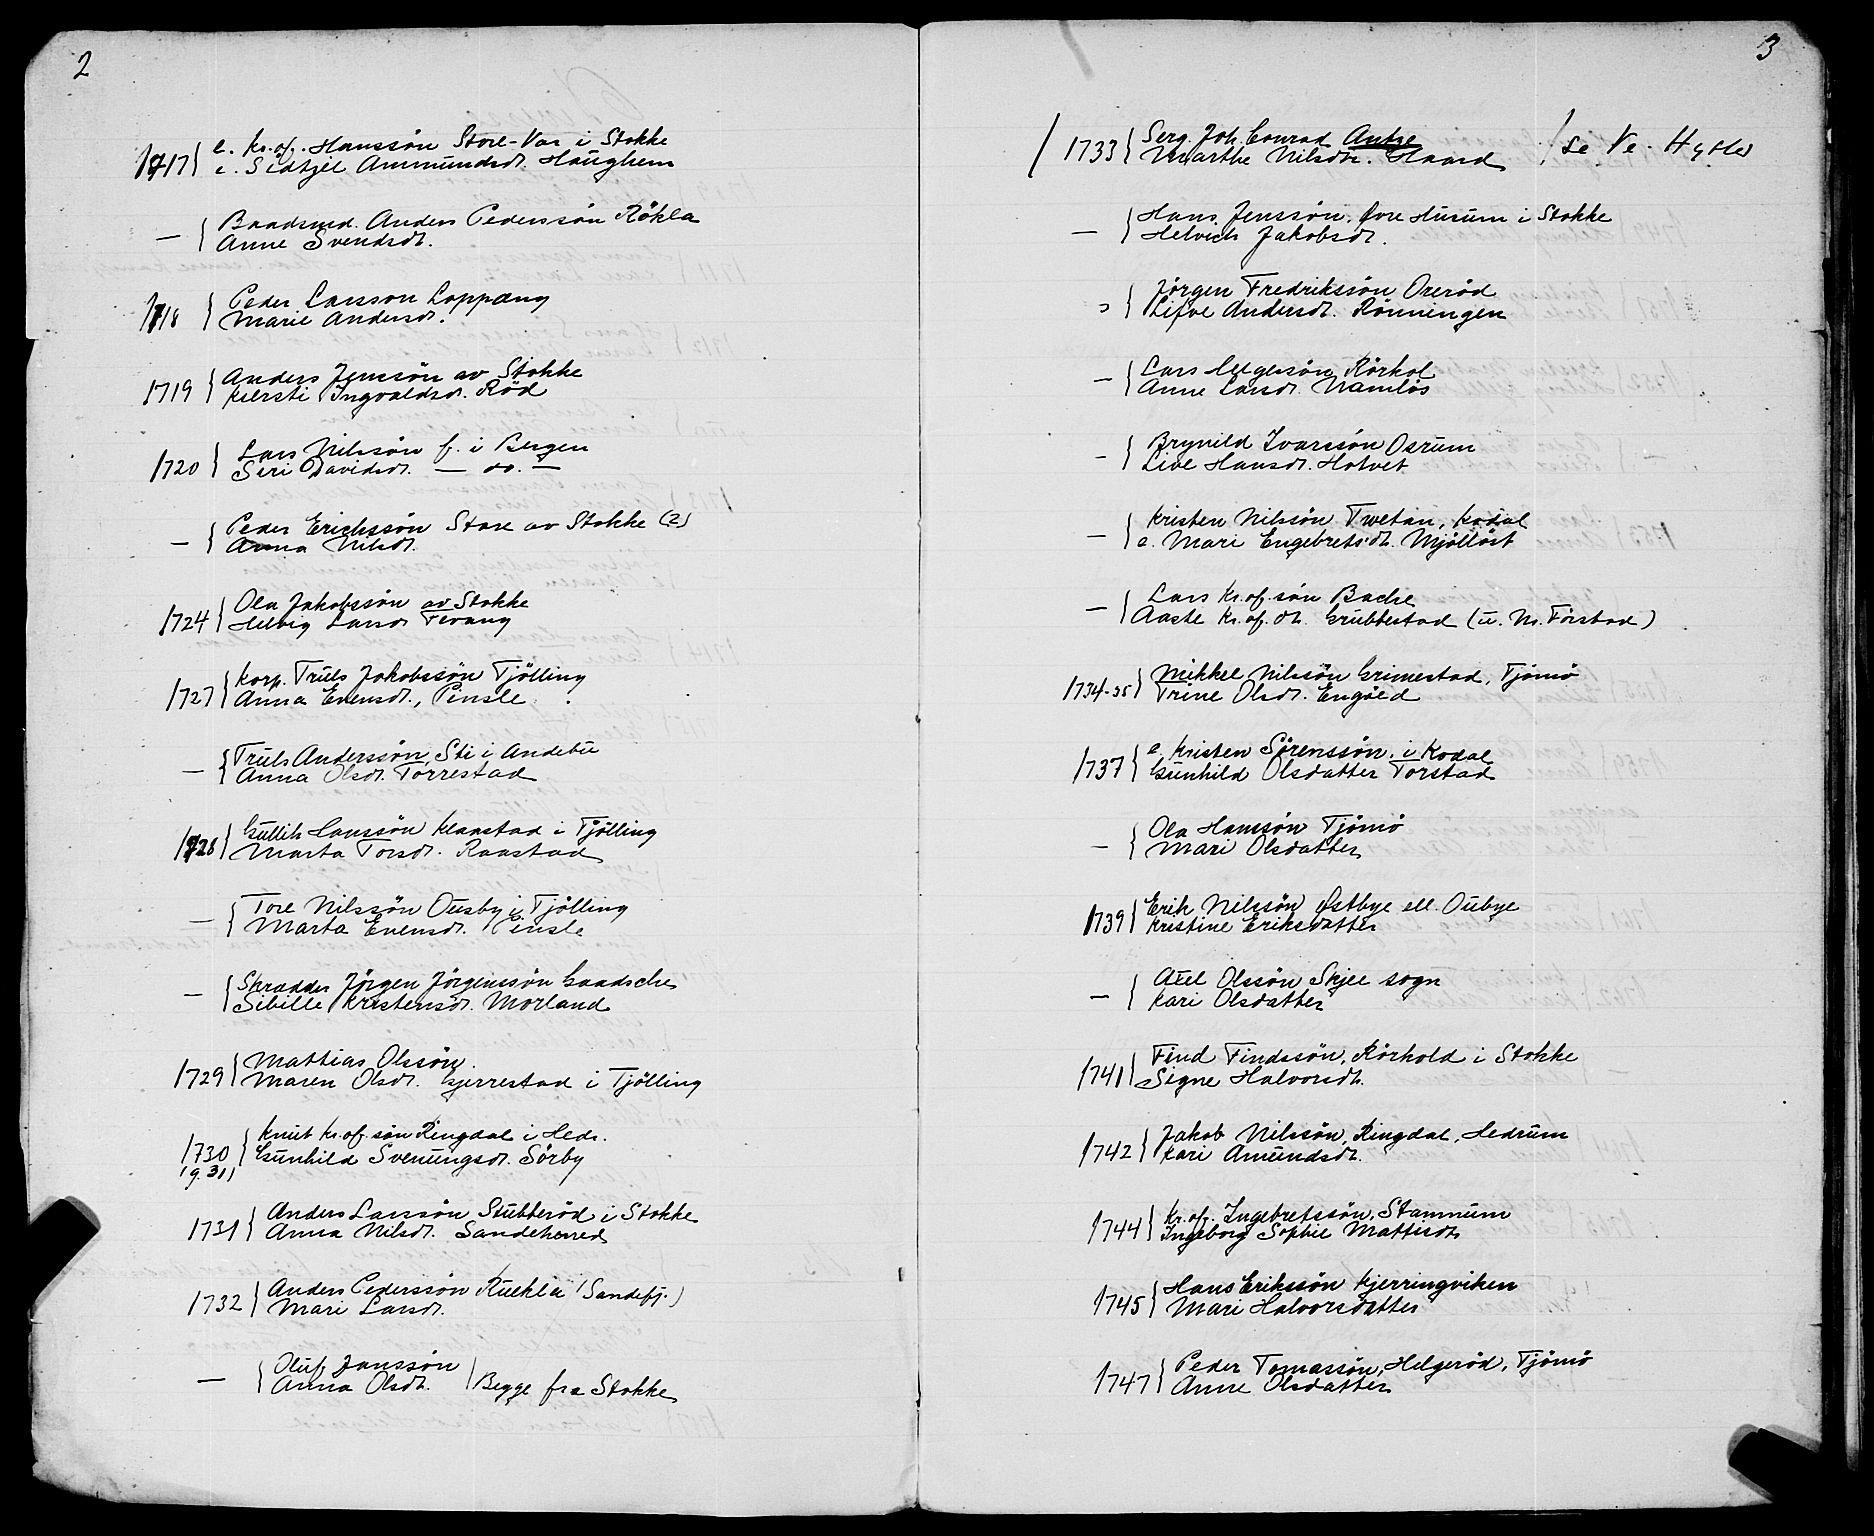 2
1717 { e. Kr.of. Hanssön Store-Var i Stokke
e. Sidsjel Ammundsdt. Haughem
— { Baadsmd. Anders Pederssön Rökla
Anne Svendsdt.
1718 { Peder Larsson Loppang
Marie Andersdt.
1719 { Anders Jenssön av Stokke
Kiersti Ingvaldsdt. Röd
1720 { Lars Nilssön f. i Bergen
Siri Davidsdt. — do. —
— { Peder Erichssön Stase av Stokke (2)
Anna Nilsdt.
1724 { Ola Jakobssön av Stokke
Helvig Larsdt Tevang
1727 { Korp. Truls Jakobssön Tjölling
Anna Evensdt., Pinsle
— { Truls Anderssön Sti i Andebu
Anna Olsdt. Torrestad
1728 { Gullik Hanssön Klaastad i Tjölling
Marta Torsdt. Raastad
— { Tore Nilssön Ousby i Tjölling
Marta Evensdt. Pinsle
— { Skrædder Jörgen Jörgenssön
Sibille Kristensdt. Morland
1729 { Mattias Olssön.
Maren Olsdt. Gjerrestad i Tjölling
1730 { Knut Kr.of.sön Ringdal i Hedr.
(g. 31) Gunhild Svenungsdt. Sörby
1731 { Anders Larssön Stubberöd i Stokke
Anna Nilsdt. Sandeherred
1732 { Anders Pederssön Ruekla (Sandefj.)
Mari Larsdt.
— { Oluf Janssön
Anna Olsdt. } Begge fra Stokke
3
/ 1733 { Serg. Joh. Conrad Antze / se Ve. Hytter
Marthe Nilsdtr. Haard
— { Hans Jenssön, Övre Husum i Stokke
Helvich Jakobsdt.
— { Jörgen Fredrikssön Oreröd
Lifve Andersdt. Rönningen
— { Lars Helgesön Rörkol
Anne Larsdt. Namlös
— { Brynild Ivarssön Osrum
Live Hansdt. Holvet
— { Kristen Nilssön Twetan, Kodal
e. Mari Engebretsdt. Mjölløst
— { Lars Kr.of.sön Backe
Aaste Kr.of.dt. Grubbestad (u. M. Förstad)
1734-35 { Mikkel Nilssön Grimestad, Tjömö
Trine Olsdt. Engöed
1737 { e. Kristen Sörenssön, i Kodal
Gunhild Olsdatter Torstad
— { Ola Hanssön Tjömö
Mari Olsdatter
1739 { Erik Nilssön Østbye ell. Oubye
Kristine Eriksdatter
— { Axel Olssön Skjee sogn
Kari Olsdatter
1741 { Find Findssön, Rörhold i Stokke
Signe Halvorsdt.
1742 { Jakob Nilssön, Ringdal, Hedrum
Kari Amundsdt.
1744 { Kr.of. Ingebretssön, Stamnum
Ingeborg Sophie Mattisdt
1745 { Hans Erikssön Kjerringviken
Mari Halvorsdatter
1747 { Peder Tomassön, Helgeröd, Tjömö
Anne Olsdatter